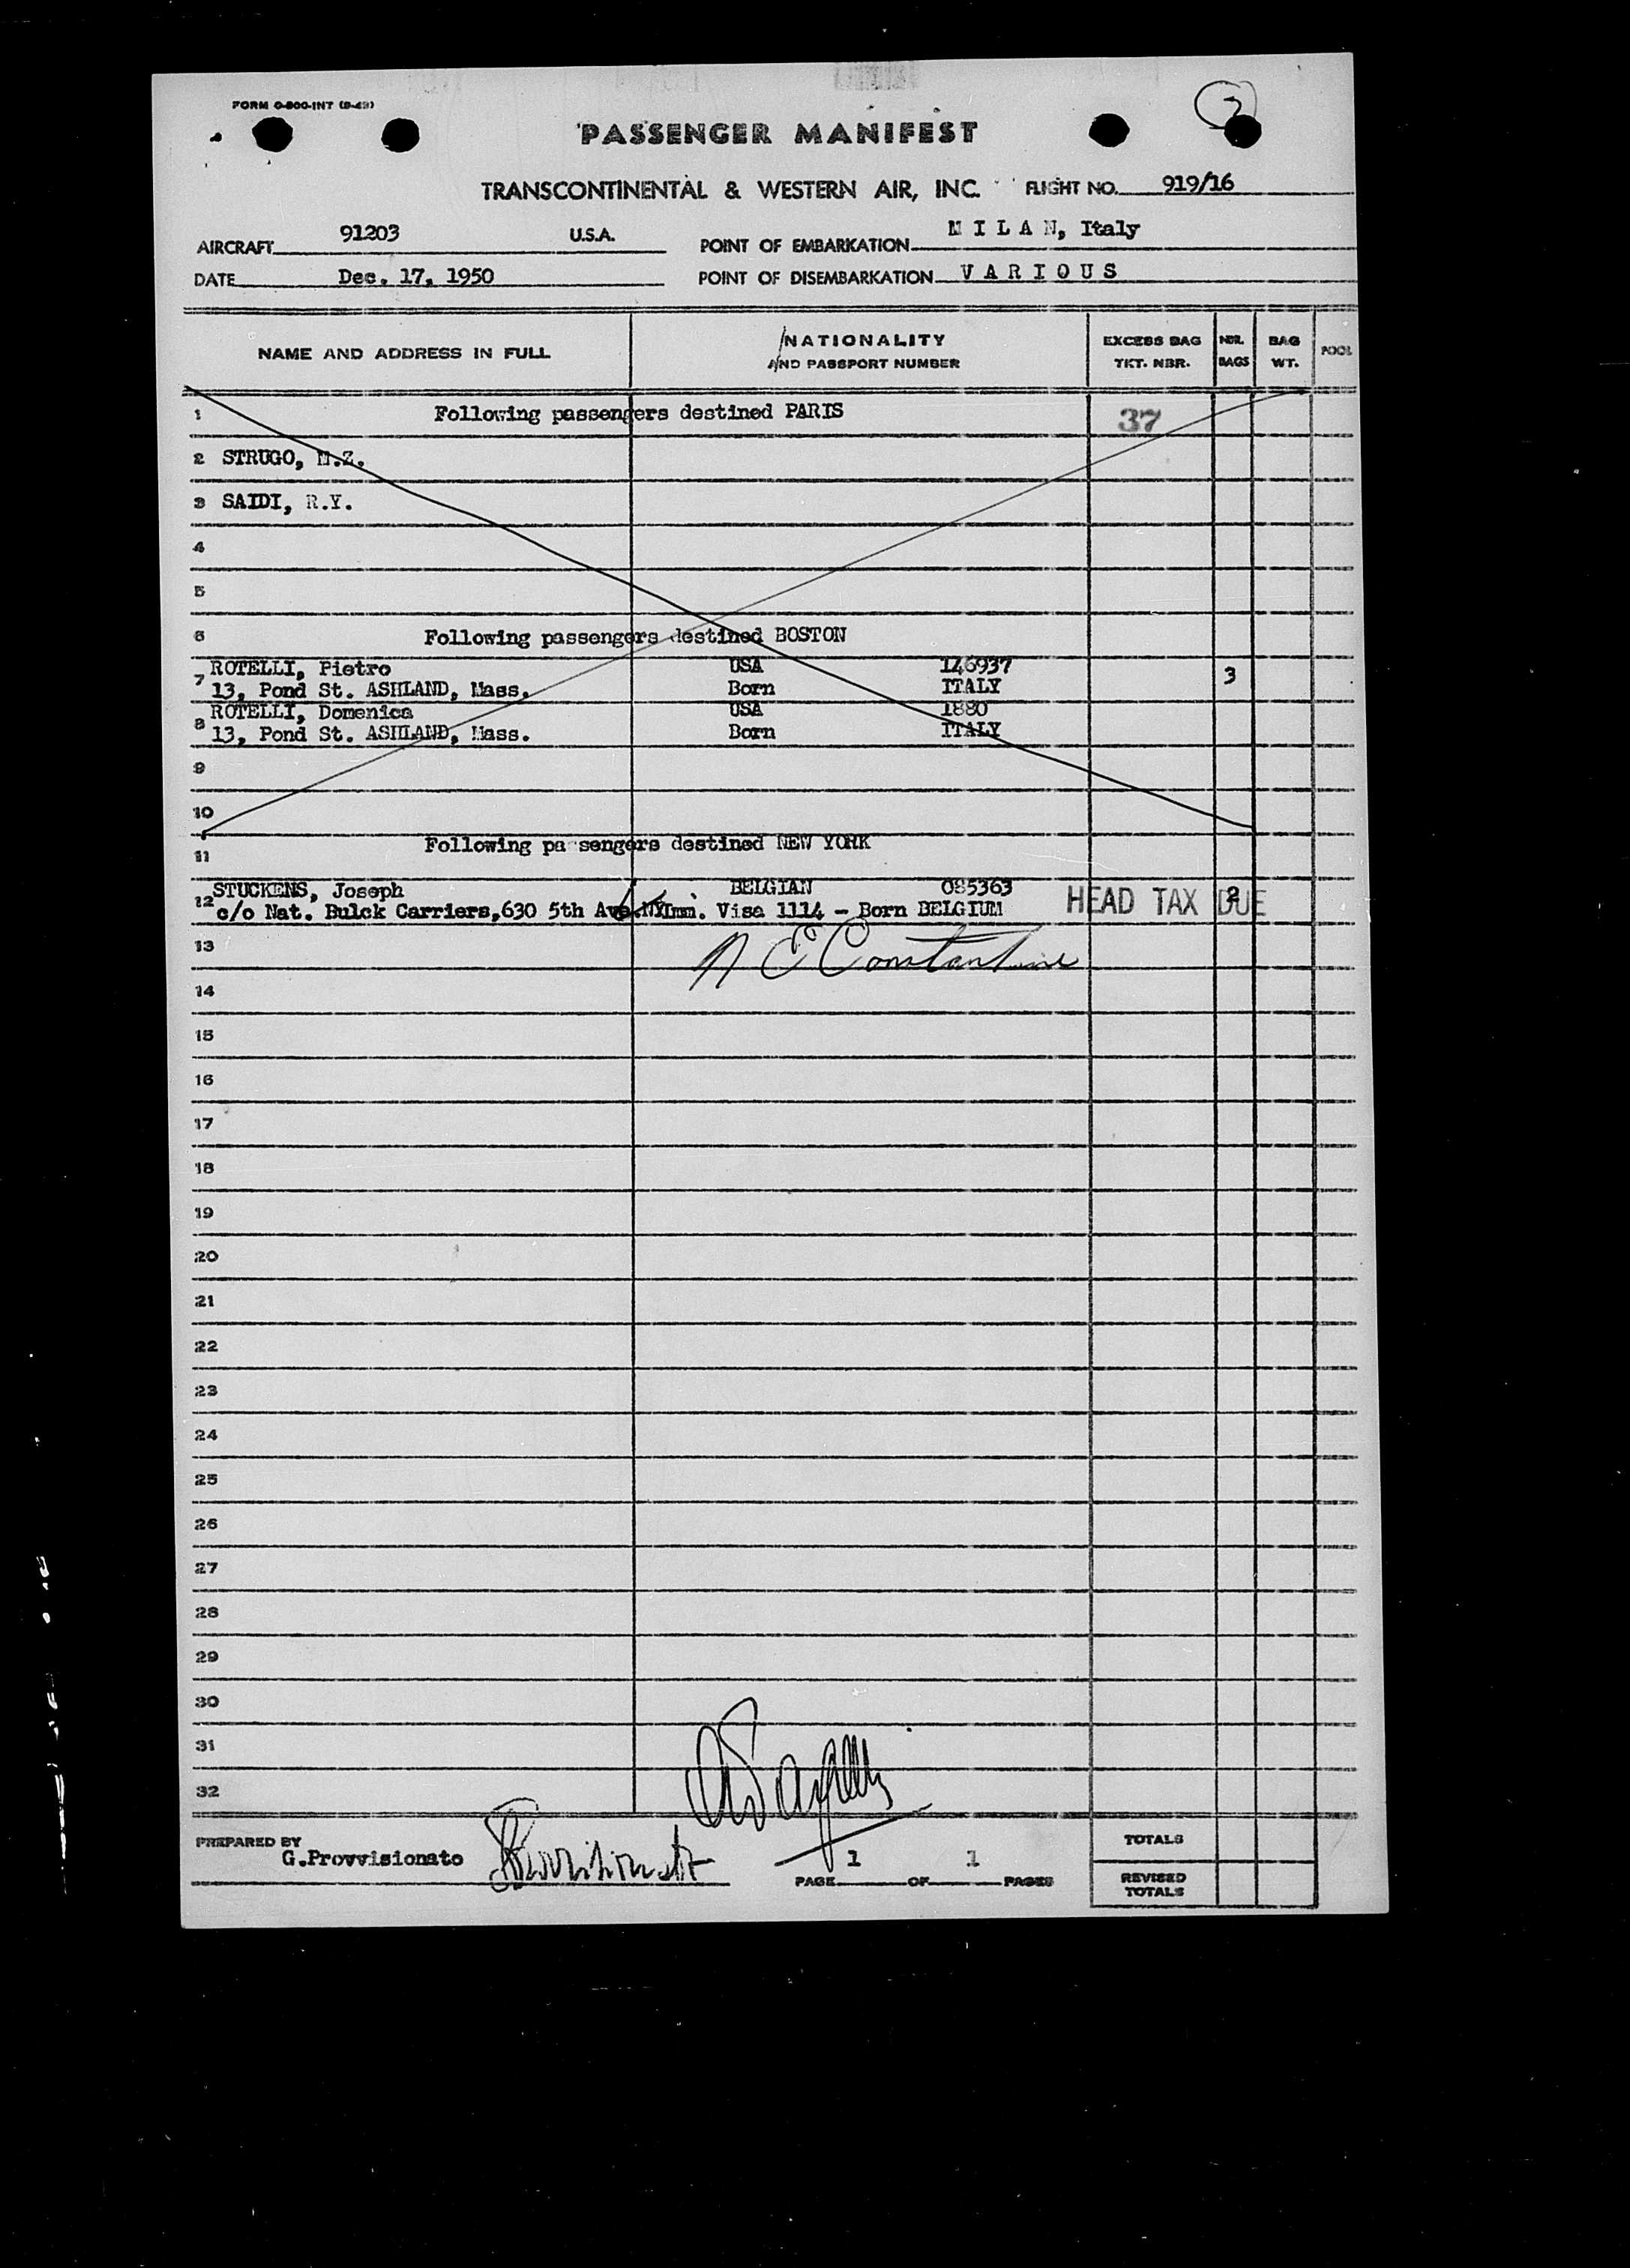 FORM O-800-INT (8-49)
2
PASSENGER MANIFEST
TRANSCONTINENTAL & WESTERN AIR, INC. FLIGHT NO. 919/16
AIRCRAFT 91203 U.S.A. POINT OF EMBARKATION M I L A N, Italy
DATE Dec. 17, 1950 POINT OF DISEMBARKATION V A R I O U S
NAME AND ADDRESS IN FULL NATIONALITY AND PASSPORT NUMBER EXCESS BAG TKT. NBR. NBR. BAGS BAG WT. POOL
1 Following passengers destined PARIS 37
2 STRUGO, M.Z.
3 SAIDI, R.Y.
4
5
6 Following passengers destined BOSTON
7 ROTELLI, Pietro USA 146937 3
13, Pond St. ASHLAND, Mass. Born ITALY
8 ROTELLI, Domenica USA 1880
13, Pond St. ASHLAND, Mass. Born ITALY
9
10
11 Following passengers destined NEW YORK
12 STUCKENS, Joseph BELGIAN 085363 HEAD TAX DUE 2
c/o Nat. Bulck Carriers,630 5th Ave.NY Imm. Visa 1114 - Born BELGIUM
13 N E Constantine
14
15
16
17
18
19
20
21
22
23
24
25
26
27
28
29
30
31
32
PREPARED BY G.Provvisionato Provvisionato PAGE 1 OF 1 PAGES
TOTALS
REVISED TOTALS